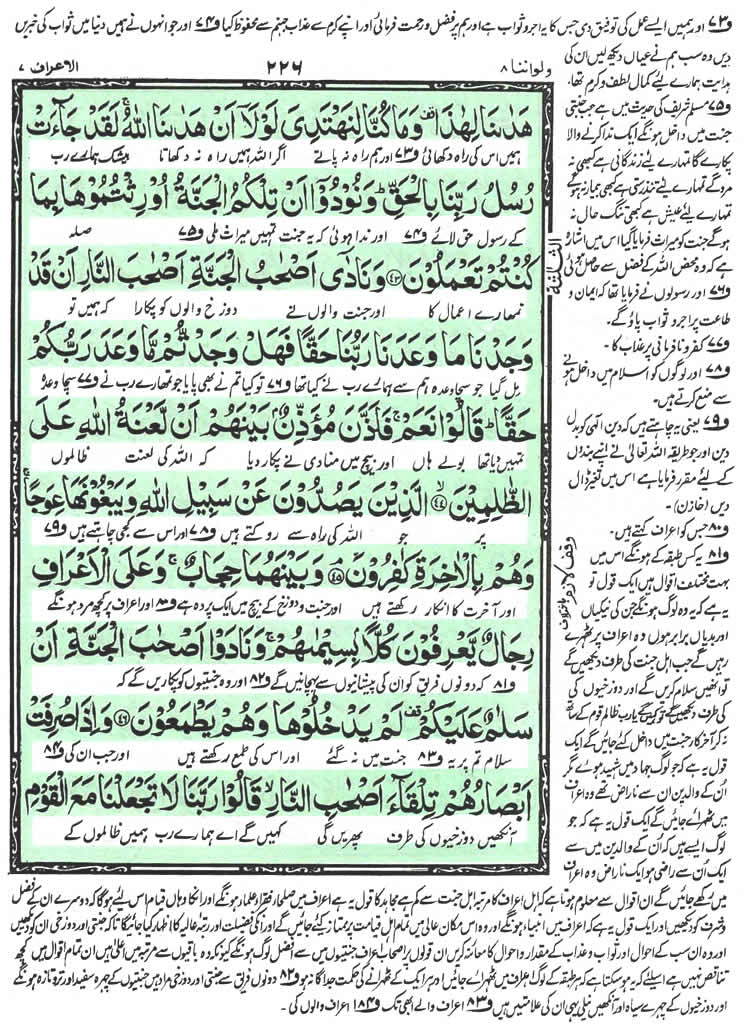 و۷۳ اور ہمیں ایسے عمل کی توفیق دی جس کا یہ اجر و ثواب ہے اور ہم پر فضل و رحمت فرمائی اور اپنے کرم سے عذاب جہنم سے محفوظ کیا و۷۴ اور جو انہوں نے ہمیں دنیا میں ثواب کی خبریں
دیں وہ سب ہم نے عیاں دیکھ لیں ان کی
ہدایت ہمارے لئے کمال لطف و کرم تھا۔
و۷۵ مسلم شریف کی حدیث میں ہے جب جنتی
جنت میں داخل ہونگے ایک ندا کرنے والا
پکارے گا تمہارے لئے زندگانی ہے کبھی نہ
مرو گے تمہارے لئے تندرستی ہے کبھی بیمار نہ ہو گے
تمہارے لئے عیش ہے کبھی تنگ حال نہ
ہو گے جنت کو میراث فرمایا گیا اس میں اشارہ
ہے کہ وہ محض اللہ کے فضل سے حاصل ہوئی
و۷۶ اور رسولوں نے فرمایا تھا کہ ایمان و
طاعت پر اجر و ثواب پاؤ گے۔
و۷۷ کفر و نافرمانی پر عذاب کا۔
و۷۸ اور لوگوں کو اسلام میں داخل ہونے
سے منع کرتے ہیں۔
و۷۹ یعنی یہ چاہتے ہیں کہ دین الٰہی کو بدل
دیں اور جو طریقہ اللہ تعالیٰ نے اپنے بندوں
کے لئے مقرر فرمایا ہے اس میں تغیر ڈال
دیں (خازن)
و۸۰ جس کو اعراف کہتے ہیں۔
و۸۱ یہ کس طبقہ کے ہونگے اس میں
بہت مختلف اقوال ہیں ایک قول تو
یہ ہے کہ یہ وہ لوگ ہونگے جن کی نیکیاں
اور بدیاں برابر ہوں وہ اعراف پر ٹھہرے
رہیں گے جب اہل جنت کی طرف دیکھیں گے
تو انھیں سلام کریں گے اور دوزخیوں کی
طرف دیکھیں گے تو کہیں گے یارب ظالم قوم کے ساتھ
نہ کر آخر کار جنت میں داخل کئے جائیں گے ایک
قول یہ ہے کہ جو لوگ جہاد میں شہید ہوئے مگر
اُن کے والدین ان سے ناراض تھے وہ اعراف
میں ٹھہرائے جائیں گے ایک قول یہ ہے کہ جو
لوگ ایسے ہیں کہ اُن کے والدین میں سے
ایک اُن سے راضی ہو ایک ناراض وہ اعراف
ولواننا ۸ ۲۲۶ الاعراف ۷
هَدٰىنَا لِهٰذَا وَمَا كُنَّا لِنَهْتَدِیَ لَوْلَاۤ اَنْ هَدٰىنَا اللّٰهُ لَقَدْ جَآءَتْ
ہمیں اس کی راہ دکھائی و۷۳ اور ہم راہ نہ پاتے اگر اللہ ہمیں راہ نہ دکھاتا بیشک ہمارے رب
رُسُلُ رَبِّنَا بِالْحَقِّ وَنُوْدُوْۤا اَنْ تِلْكُمُ الْجَنَّةُ اُوْرِثْتُمُوْهَا بِمَا
کے رسول حق لائے و۷۴ اور ندا ہوئی کہ یہ جنت تمہیں میراث ملی و۷۵ صلہ
كُنْتُمْ تَعْمَلُوْنَ ﴿۴۳﴾ وَنَادٰۤى اَصْحٰبُ الْجَنَّةِ اَصْحٰبَ النَّارِ اَنْ قَدْ
تمہارے اعمال کا اور جنت والوں نے دوزخ والوں کو پکارا کہ ہمیں تو
وَجَدْنَا مَا وَعَدَنَا رَبُّنَا حَقًّا فَهَلْ وَجَدْتُّمْ مَّا وَعَدَ رَبُّكُمْ
مل گیا جو سچا وعدہ ہم سے ہمارے رب نے کیا تھا و۷۶ تو کیا تم نے بھی پایا جو تمہارے رب نے و۷۷ سچا وعدہ
حَقًّا قَالُوْا نَعَمْ فَاَذَّنَ مُؤَذِّنٌۢ بَیْنَهُمْ اَنْ لَّعْنَةُ اللّٰهِ عَلَى
تمہیں دیا تھا بولے ہاں اور بیچ میں منادی نے پکار دیا کہ اللہ کی لعنت ظالموں
الظّٰلِمِیْنَ ﴿۴۴﴾ الَّذِیْنَ یَصُدُّوْنَ عَنْ سَبِیْلِ اللّٰهِ وَیَبْغُوْنَهَا عِوَجًا
پر جو اللہ کی راہ سے روکتے ہیں و۷۸ اور اس سے کجی چاہتے ہیں و۷۹
وَهُمْ بِالْاٰخِرَةِ كٰفِرُوْنَ ﴿۴۵﴾ وَبَیْنَهُمَا حِجَابٌ وَعَلَى الْاَعْرَافِ
اور آخرت کا انکار رکھتے ہیں اور جنت و دوزخ کے بیچ میں ایک پردہ ہے و۸۰ اور اعراف پر کچھ مرد ہونگے
رِجَالٌ یَّعْرِفُوْنَ كُلًّۢا بِسِیْمٰىهُمْ وَنَادَوْا اَصْحٰبَ الْجَنَّةِ اَنْ
و۸۱ کہ دونوں فریق کو ان کی پیشانیوں سے پہچانیں گے و۸۲ اور وہ جنتیوں کو پکاریں گے کہ
سَلٰمٌ عَلَیْكُمْ لَمْ یَدْخُلُوْهَا وَهُمْ یَطْمَعُوْنَ ﴿۴۶﴾ وَاِذَا صُرِفَتْ
سلام تم پر یہ و۸۳ جنت میں نہ گئے اور اس کی طمع رکھتے ہیں اور جب ان کی و۸۴
اَبْصَارُهُمْ تِلْقَآءَ اَصْحٰبِ النَّارِ قَالُوْا رَبَّنَا لَا تَجْعَلْنَا مَعَ الْقَوْمِ
آنکھیں دوزخیوں کی طرف پھریں گی کہیں گے اے ہمارے رب ہمیں ظالموں کے
الثلثة
وقف لازم
میں رکھے جائیں گے ان اقوال سے معلوم ہوتا ہے کہ اہل اعراف کا مرتبہ اہل جنت سے کم ہے مجاہد کا قول یہ ہے اعراف میں صلحا، فقہا، علما ہونگے اور انکا وہاں قیام اس لئے ہوگا کہ دوسرے ان کے فضل
و شرف کو دیکھیں اور ایک قول یہ ہے کہ اعراف میں انبیاء ہونگے اور وہ اس مکان عالی میں تمام اہل قیامت پر ممتاز کئے جائیں گے اور انکی فضیلت اور رتبۂ عالیہ کا اظہار کیا جائے گا تاکہ جنتی اور دوزخی ان کو دیکھیں
اور وہ ان سب کے احوال اور ثواب و عذاب کے مقدار و احوال کا معائنہ کریں ان قولوں پر اصحاب اعراف جنتیوں میں سے افضل لوگ ہونگے کیونکہ وہ باقیوں سے مرتبہ میں اعلیٰ ہیں ان تمام اقوال میں کچھ
تناقض نہیں ہے اسلئے کہ یہ ہو سکتا ہے کہ ہر طبقہ کے لوگ اعراف میں ٹھہرائے جائیں اور ہر ایک کے ٹھہرانے کی حکمت جداگانہ ہو و۸۲ دونوں فریق سے جنتی اور دوزخی مراد ہیں جنتیوں کے چہرے سفید اور تر و تازہ ہونگے
اور دوزخیوں کے چہرے سیاہ اور آنکھیں نیلی یہی ان کی علامتیں ہیں و۸۳ اعراف والے ابھی تک و۸۴ اعراف والوں کی۔